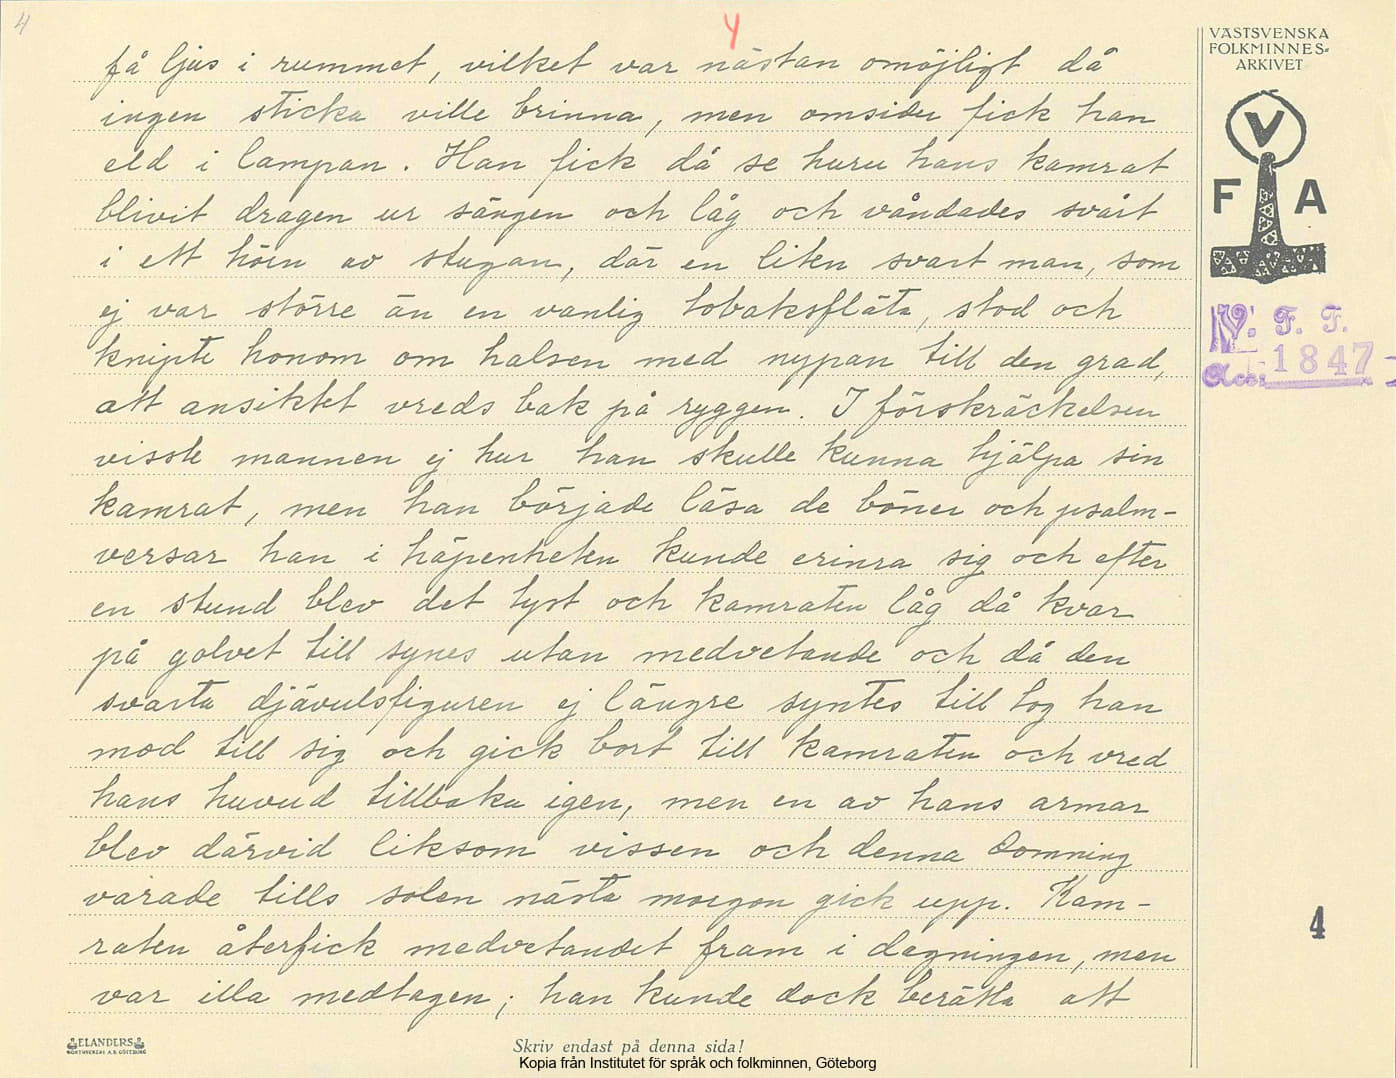 4
4
få ljus i rummet, vilket var nästan omöjligt då
ingen sticka ville brinna, men omsider fick han
eld i lampan. Han fick då se huru hans kamrat
blivit dragen ur sängen och låg och våndades svårt
i ett hörn av stugan, där en liten svart man, som
ej var större än en vanlig tobaksfläta, stod och
knipte honom om halsen med nypan till den grad,
att ansiktet vreds bak på ryggen. I förskräckelsen
visste mannen ej hur han skulle kunna hjälpa sin
kamrat, men han började läsa de böner och psalm-
versar han i häpenheten kunde erinra sig och efter
en stund blev det tyst och kamraten låg då kvar
på golvet till synes utan medvetande och då den
svarta djävulsfiguren ej längre syntes till tog han
mod till sig och gick bort till kamraten och vred
hans huvud tillbaka igen, men en av hans armar
blev därvid liksom vissen och denna domning
varade tills solen nästa morgon gick upp. Kam-
raten återfick medvetandet fram i dagningen, men
var illa medtagen; han kunde dock berätta att
VÄSTSVENSKA
FOLKMINNES-
ARKIVET
V
F A
V. F. F.
Acc. 1847
4
ELANDERS
BOKTRYCKERI A.B. GÖTEBORG
Skriv endast på denna sida!
Kopia från Institutet för språk och folkminnen, Göteborg